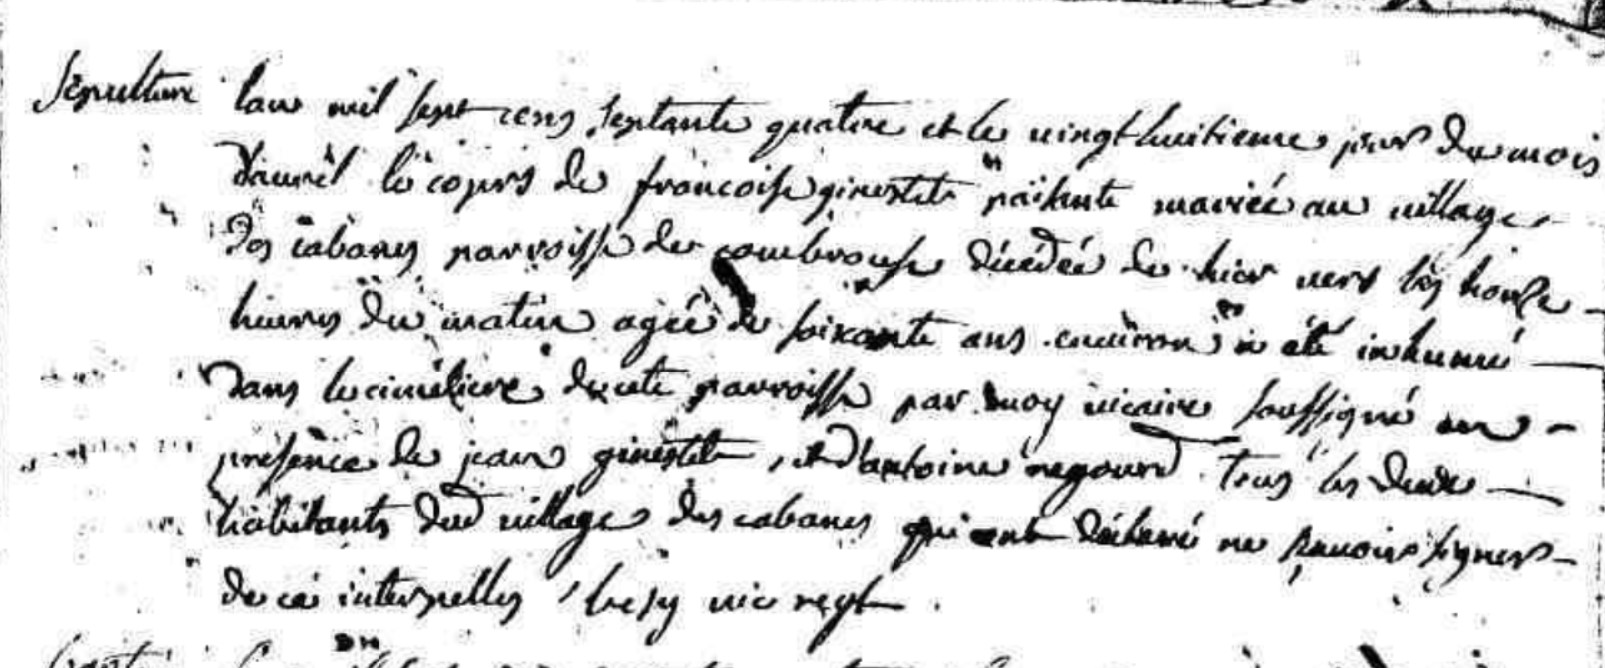 Sépulture lan mil sept cens septante quatre et le vingt huitieme jour du mois
d'auril le corps de francoise ginestet mariée au village
des cabanes parroisse de combrouse décédée de hier vers les honse
heures du matin agée de soixante ans enuiron a été inhumé
dans le cimetiere de cete parroisse par moy vicaire soussigné en
présence de jean ginestet, et d'antoine negourd tous les deux
habitants dud village des cabanes qui ont déclaré ne sauoir signer
de ce interpelles vic regt